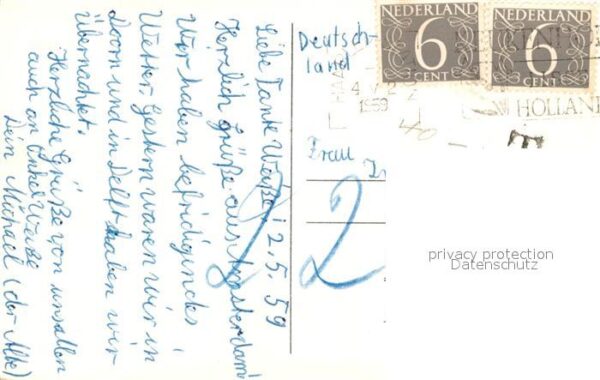 Liebe Tante Weiße! 2.5.59
Herzlich Grüße aus Amsterdam!
Wir haben befridigindes
Wetter. Gestern waren wir in
Doorn und in Delft haben wir
Übernachtet.
Herzliche Grüße von uns allen
auch an Onkel Weiße
Dein Michael (der Alte)
Deutsch-
land
Frau
2
2
NEDERLAND
6
CENT
NEDERLAND
6
CENT
1959
HOLLAND
40 -
privacy protection
Datenschutz